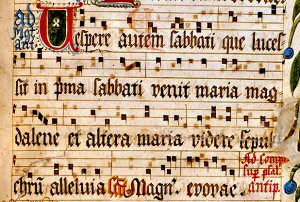 ad
Mgt
ant.
Vespere autem sabbati que luces
sit in pma sabbati venit maria mag
dalene et altera maria videre sepul
chru alleluia Magn. evovae.
Ad comp
sup psal.
antip.